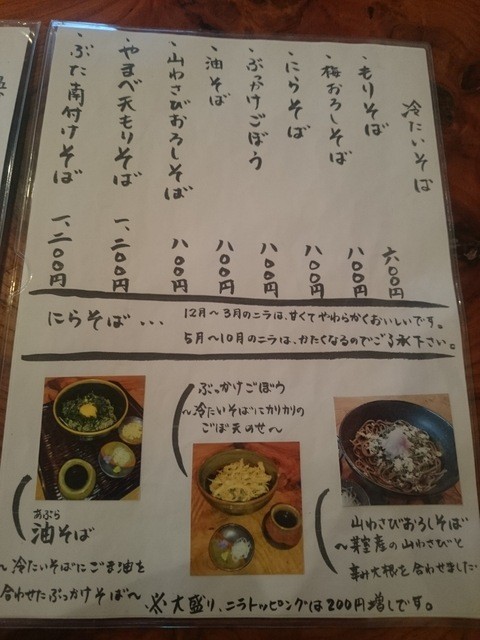 冷たいそば
・もりそば 六〇〇円
・梅おろしそば 八〇〇円
・にらそば 八〇〇円
・ぶっかけごぼう 八〇〇円
・油そば 八〇〇円
・山わさびおろしそば 八〇〇円
・やまべ天もりそば 一、二〇〇円
・ぶた南付けそば 一、二〇〇円
にらそば・・・
12月～3月のニラは、甘くてやわらかくおいしいです。
5月～10月のニラは、かたくなるのでご了承下さい。
ぶっかけごぼう
～冷たいそばにカリカリの
ごぼ天のせ～
あぶら
油そば
～冷たいそばにごま油を
合わせたぶっかけそば～
山わさびおろしそば
～芽室産の山わさびと
辛み大根を合わせました
※大盛り、ニラトッピングは200円増しです。